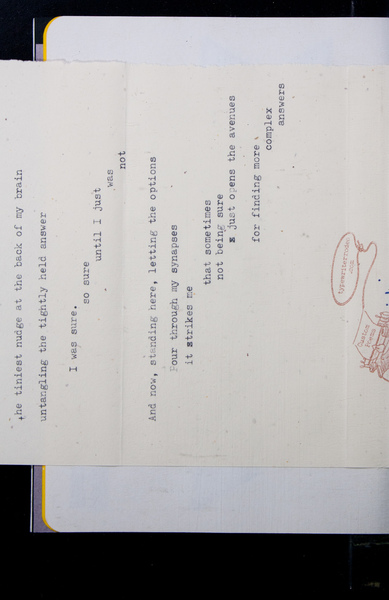 the tiniest nudge at the back of my brain
untangling the tightly held answer
I was sure.
so sure
until I just
was
not
And now, standing here, letting the options
Pour through my synapses
it strikes me
that sometimes
not being sure
just opens the avenues
for finding more
complex
answers
typewriterrodeo
.com
Custom
Poems